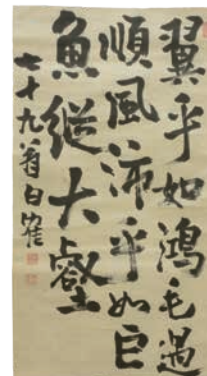 翼乎如鴻毛遇
順風沛乎如巨
魚縱大壑
七十九翁白雀